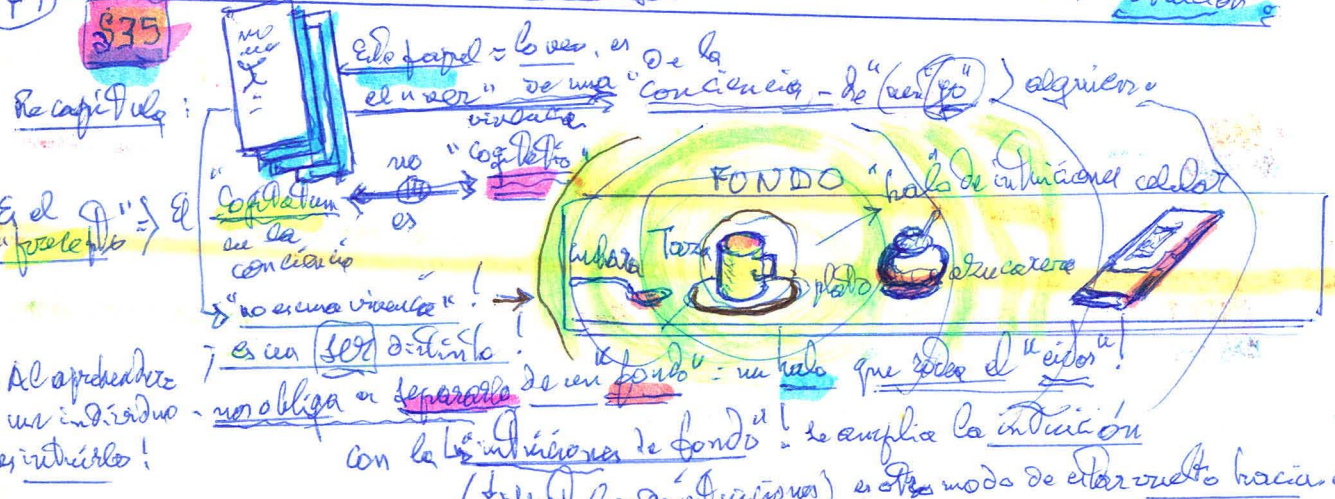 §35
Este papel = lo veo, es De la
el "ser" de una "conciencia - de (un "yo") alguien.
vivencia
Recapitula:
no "cogitatio"
es
Es el "percepto" => El "cogitatum
en la
conciencia
"no es una vivencia"!
es un ser distinto!
FONDO "halo de intuiciones
cuchara Taza plato azucarera
Al aprehender
un individuo - nos obliga a separarlo de un "fondo" = un halo que rodea el "eidos"!
es intuirlo!
con las "intuiciones de fondo"! se amplia la intuición
intuiciones) es otro modo de estar vuelto hacia